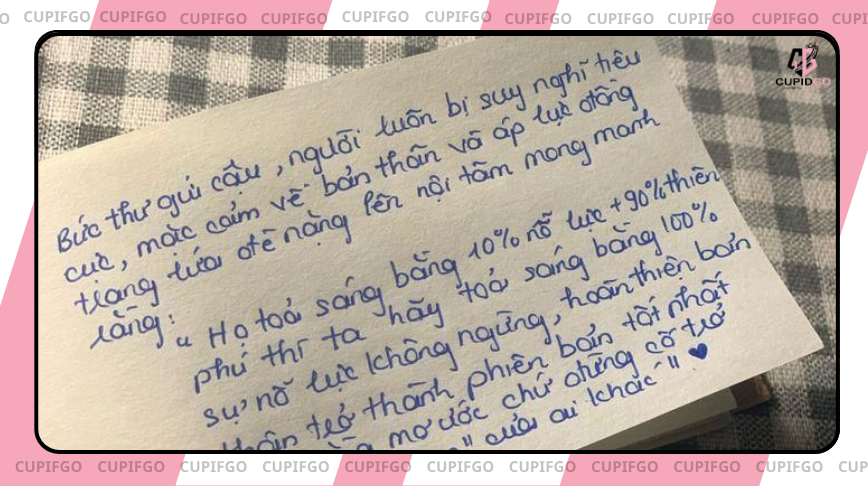 CUPIFGO CUPIFGO CUPIFGO CUPIFGO CUPIFGO CUPIFGO CUPIFGO CUPIFGO CUPIFGO CUPIFGO
CUPIDGO
Bức thư gửi cậu, người luôn bị suy nghĩ tiêu
cực, mặc cảm về bản thân và áp lực đồng
trang lứa đè nặng lên nội tâm mong manh
rằng:
" Họ toả sáng bằng 10% nỗ lực + 90% thiên
phú thì ta hãy toả sáng bằng 100%
sự nỗ lực không ngừng, hoàn thiện bản
thân trở thành phiên bản tốt nhất
mơ ước chứ đừng cố trở
" của ai khác" ♥
CUPIFGO CUPIFGO CUPIFGO CUPIFGO CUPIFGO CUPIFGO CUPIFGO CUPIFGO CUPIFGO CUPIFGO